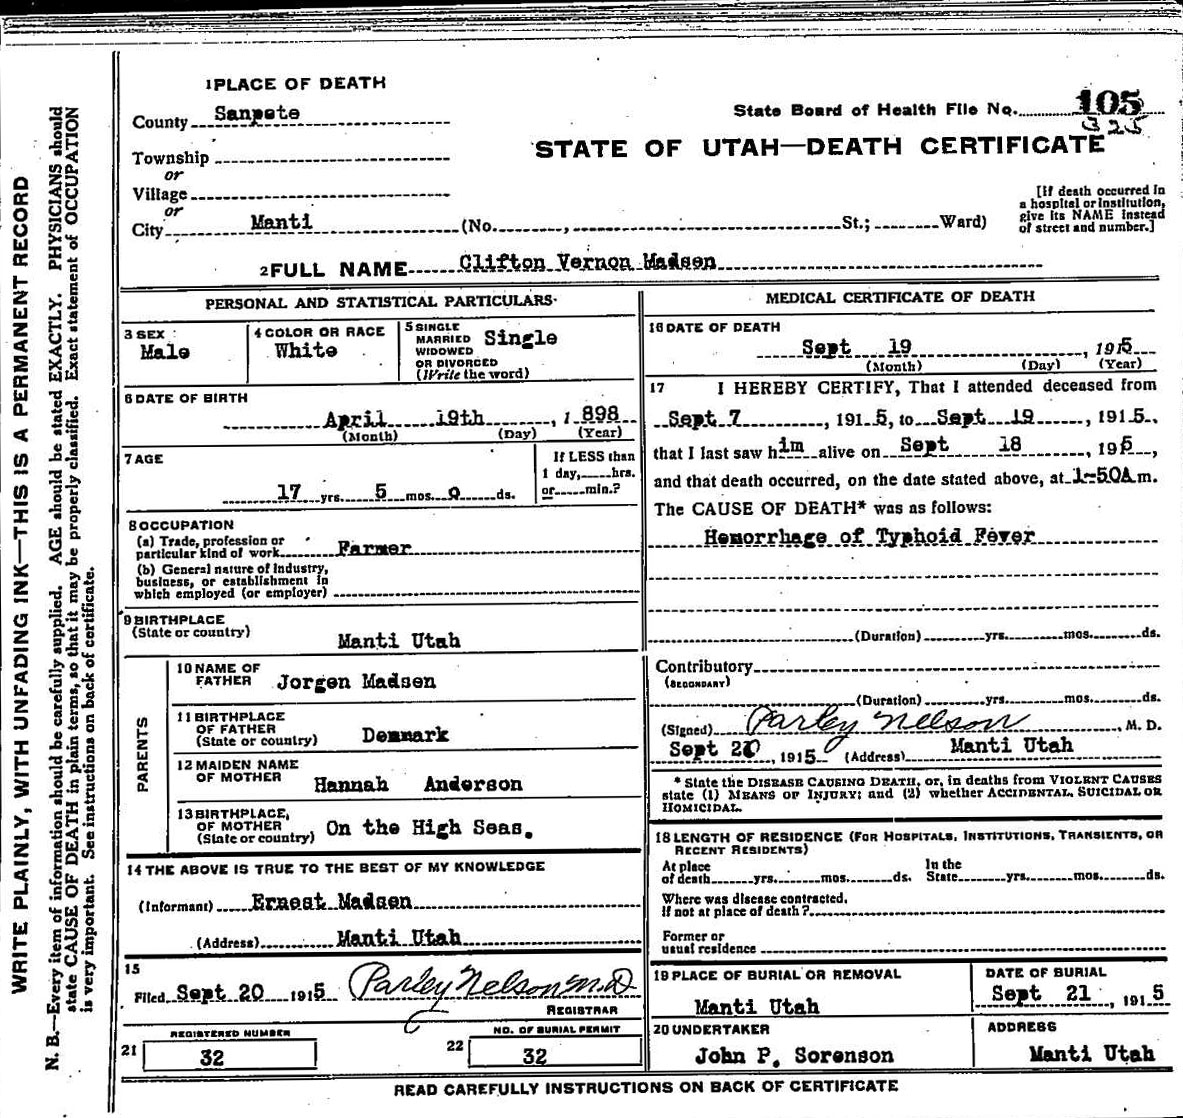 WRITE PLAINLY, WITH UNFADING INK—THIS IS A PERMANENT RECORD
N. B.—Every item of information should be carefully supplied. AGE should be stated EXACTLY. PHYSICIANS should
state CAUSE OF DEATH in plain terms, so that it may be properly classified. Exact statement of OCCUPATION
is very important. See instructions on back of certificate.
1 PLACE OF DEATH
County Sanpete
Township
or
Village
or
City Manti (No. , St.; Ward)
State Board of Health File No. 105
325
STATE OF UTAH—DEATH CERTIFICATE
[If death occurred in
a hospital or institution,
give its NAME instead
of street and number.]
2 FULL NAME Clifton Vernon Madsen
PERSONAL AND STATISTICAL PARTICULARS
3 SEX
Male
4 COLOR OR RACE
White
5 SINGLE
MARRIED
WIDOWED
OR DIVORCED
(Write the word)
Single
6 DATE OF BIRTH
April 19th , 1 898
(Month) (Day) (Year)
7 AGE
17 yrs. 5 mos. 0 ds.
If LESS than
1 day, hrs.
or min.?
8 OCCUPATION
(a) Trade, profession or
particular kind of work Farmer
(b) General nature of Industry,
business, or establishment in
which employed (or employer)
9 BIRTHPLACE
(State or country)
Manti Utah
PARENTS
10 NAME OF
FATHER Jorgen Madsen
11 BIRTHPLACE
OF FATHER
(State or country) Denmark
12 MAIDEN NAME
OF MOTHER
Hannah Anderson
13 BIRTHPLACE,
OF MOTHER
(State or country) On the High Seas.
14 THE ABOVE IS TRUE TO THE BEST OF MY KNOWLEDGE
(Informant) Ernest Madsen
(Address) Manti Utah
15
Filed Sept 20 1915 Parley Nelson M.D
REGISTRAR
REGISTERED NUMBER
21 32
NO. OF BURIAL PERMIT
22 32
MEDICAL CERTIFICATE OF DEATH
16 DATE OF DEATH
Sept 19 , 1915
(Month) (Day) (Year)
17 I HEREBY CERTIFY, That I attended deceased from
Sept 7 , 191 5, to Sept 19 , 191 5.
that I last saw him alive on Sept 18 , 1915,
and that death occurred, on the date stated above, at 1-50A m.
The CAUSE OF DEATH* was as follows:
Hemorrhage of Typhoid Fever
(Duration) yrs. mos. ds.
Contributory
(SECONDARY)
(Duration) yrs. mos. ds.
(Signed) Parley Nelson , M. D.
Sept 20 , 1915 (Address) Manti Utah
* State the DISEASE CAUSING DEATH, or, in deaths from VIOLENT CAUSES
state (1) MEANS OF INJURY; and (2) whether ACCIDENTAL, SUICIDAL OR
HOMICIDAL.
18 LENGTH OF RESIDENCE (FOR HOSPITALS, INSTITUTIONS, TRANSIENTS, OR
RECENT RESIDENTS)
At place
of death yrs. mos. ds.
In the
State yrs. mos. ds.
Where was disease contracted,
If not at place of death?
Former or
usual residence
19 PLACE OF BURIAL OR REMOVAL
Manti Utah
DATE OF BURIAL
Sept 21 , 191 5
20 UNDERTAKER
John P. Sorenson
ADDRESS
Manti Utah
READ CAREFULLY INSTRUCTIONS ON BACK OF CERTIFICATE